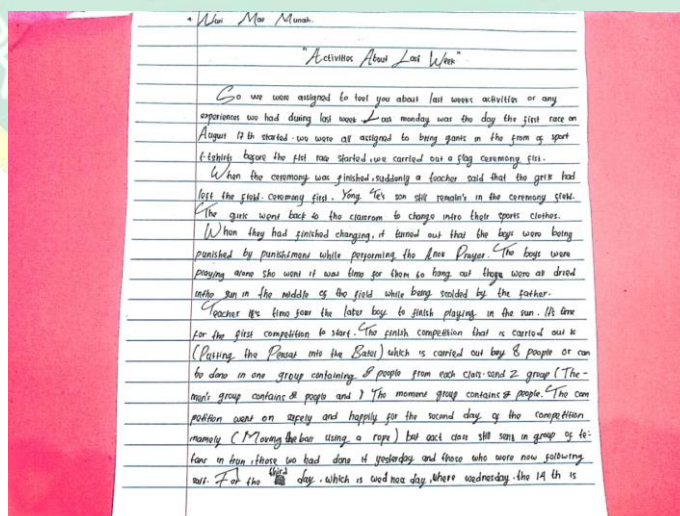 Wan Mae Munah.
"Activities About Last Week"
So we were assigned to tell you about last weeks activities or any
experiences we had during last week Last monday was the day the first race on
August 17 th started. we were all assigned to bring gants in the from of sport
t-tshirts before the fist race started, we carried out a flag ceremony fisi.
When the ceremony was finished, suddenly a teacher said that the girls had
left the field. ceremony first. Yang Te's son still remain's in the ceremony field.
The girls went back to the classrom to change intro their sports clothes.
When they had finished changing, it turned out that the boys were being
punished by punishment while performing the Anox Prayer. The boys were
praying alone she went it was time for them to hang out those were at dried
inthe sun in the middle of the field while being scolded by the father.
Teacher it's time four the later boy to finish playing in the sun. It's time
for the first competition to start. The finish competition that is carried out is
(Putting the Pensar into the Bator) which is carried out boy 8 people or can
be done in one group containing 8 people from each class. and 2 group (The
men's group contains 8 people and) The moment group contains 8 people. The com
petition went on safely and happily for the second day of the competition
mamely (Moving the ban using a rope) but each class still sens in group of
in from, those wo had done it yesterday and those who were now following
suit. For the third day. which is wed nes day, where wednesday the 14 th is